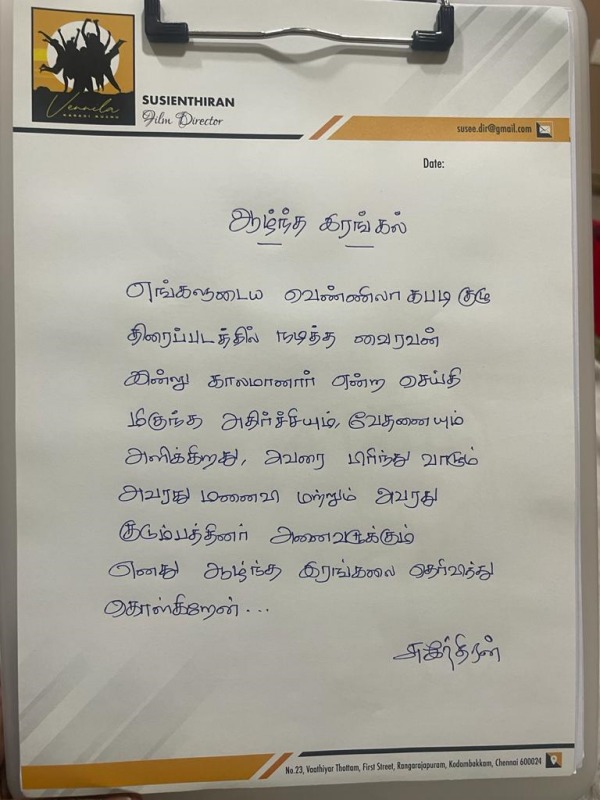 Vennila
KABADI KUZHU
SUSIENTHIRAN
Film Director
susee.dir@gmail.com
Date:
ஆழ்ந்த இரங்கல்
எங்களுடைய வெண்ணிலா கபடி குழு
திரைப்படத்தில் நடித்த வைரவன்
இன்று காலமானார் என்ற செய்தி
மிகுந்த அதிர்ச்சியும், வேதனையும்
அளிக்கிறது, அவரை பிரிந்து வாடும்
அவரது மனைவி மற்றும் அவரது
குடும்பத்தினர் அனைவருக்கும்
எனது ஆழ்ந்த இரங்கலை தெரிவித்து
கொள்கிறேன்...
சுசீந்திரன்
No.23, Vaathiyar Thottam, First Street, Rangarajapuram, Kodambakkam, Chennai 600024